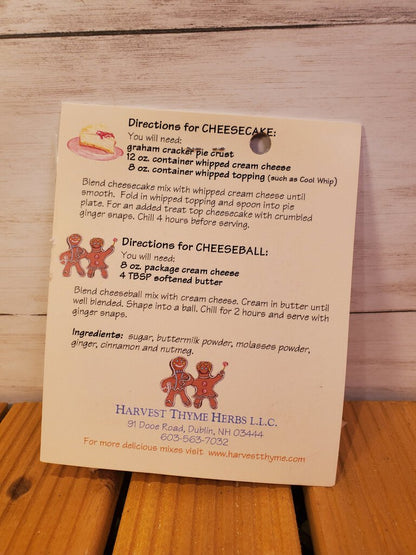 Directions for CHEESECAKE:
You will need:
graham cracker pie crust
12 oz. container whipped cream cheese
8 oz. container whipped topping (such as Cool Whip)
Blend cheesecake mix with whipped cream cheese until
smooth. Fold in whipped topping and spoon into pie
plate. For an added treat top cheesecake with crumbled
ginger snaps. Chill 4 hours before serving.
Directions for CHEESEBALL:
You will need:
8 oz. package cream cheese
4 TBSP softened butter
Blend cheeseball mix with cream cheese. Cream in butter until
well blended. Shape into a ball. Chill for 2 hours and serve with
ginger snaps.
Ingredients: sugar, buttermilk powder, molasses powder,
ginger, cinnamon and nutmeg.
HARVEST THYME HERBS L.L.C.
91 Dooe Road, Dublin, NH 03444
603-563-7032
For more delicious mixes visit www.harvestthyme.com